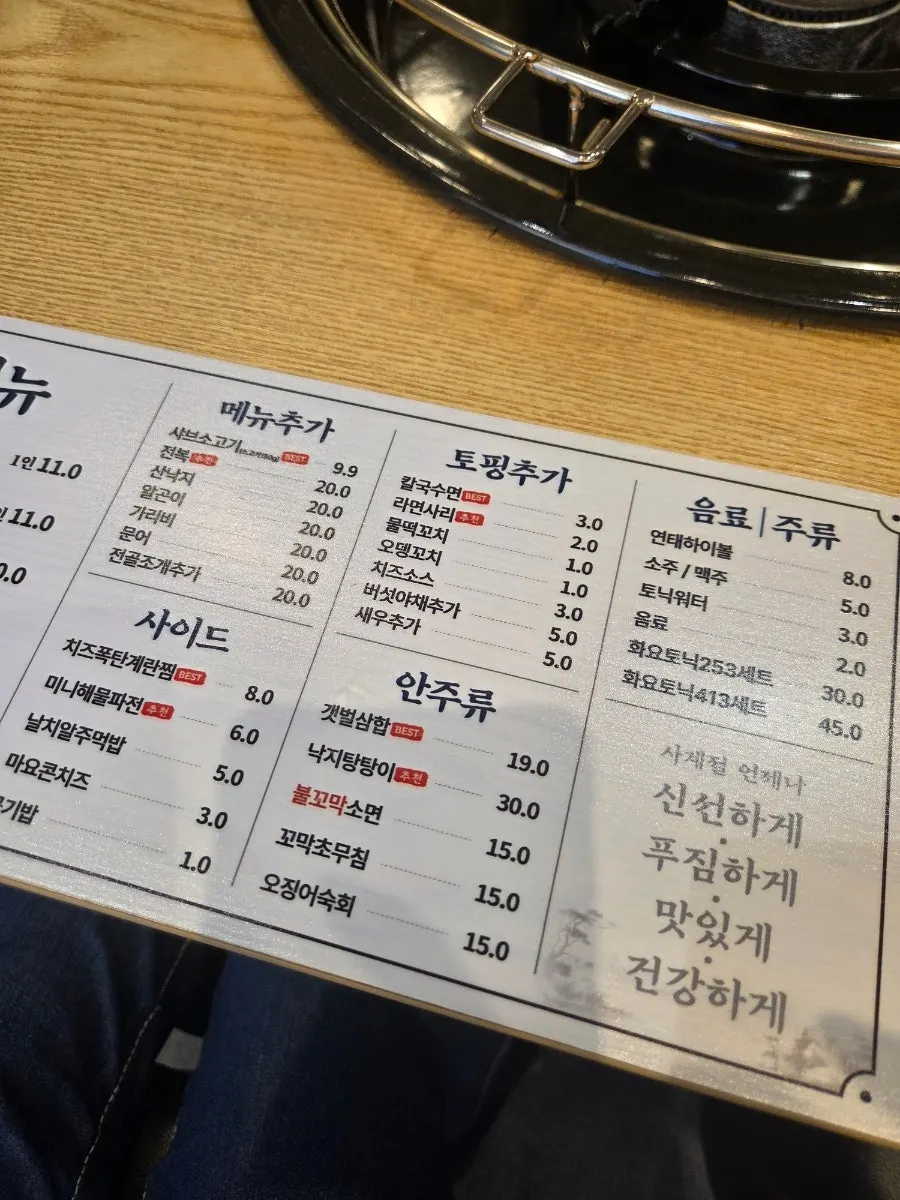 뉴
1인 11.0
11.0
0.0
메뉴추가
샤브소고기 BEST 9.9
전복 추천 20.0
산낙지 20.0
알곤이 20.0
가리비 20.0
문어 20.0
전골조개추가 20.0
사이드
치즈폭탄계란찜 BEST 8.0
미니해물파전 추천 6.0
날치알주먹밥 5.0
마요콘치즈 3.0
기밥 1.0
토핑추가
칼국수면 BEST 3.0
라면사리 추천 2.0
물떡꼬치 1.0
오뎅꼬치 1.0
치즈소스 3.0
버섯야채추가 5.0
새우추가 5.0
안주류
갯벌삼합 BEST 19.0
낙지탕탕이 추천 30.0
불꼬막소면 15.0
꼬막초무침 15.0
오징어숙회 15.0
음료 | 주류
연태하이볼 8.0
소주 / 맥주 5.0
토닉워터 3.0
음료 2.0
화요토닉253세트 30.0
화요토닉413세트 45.0
사계절 언제나
신선하게
푸짐하게
맛있게
건강하게